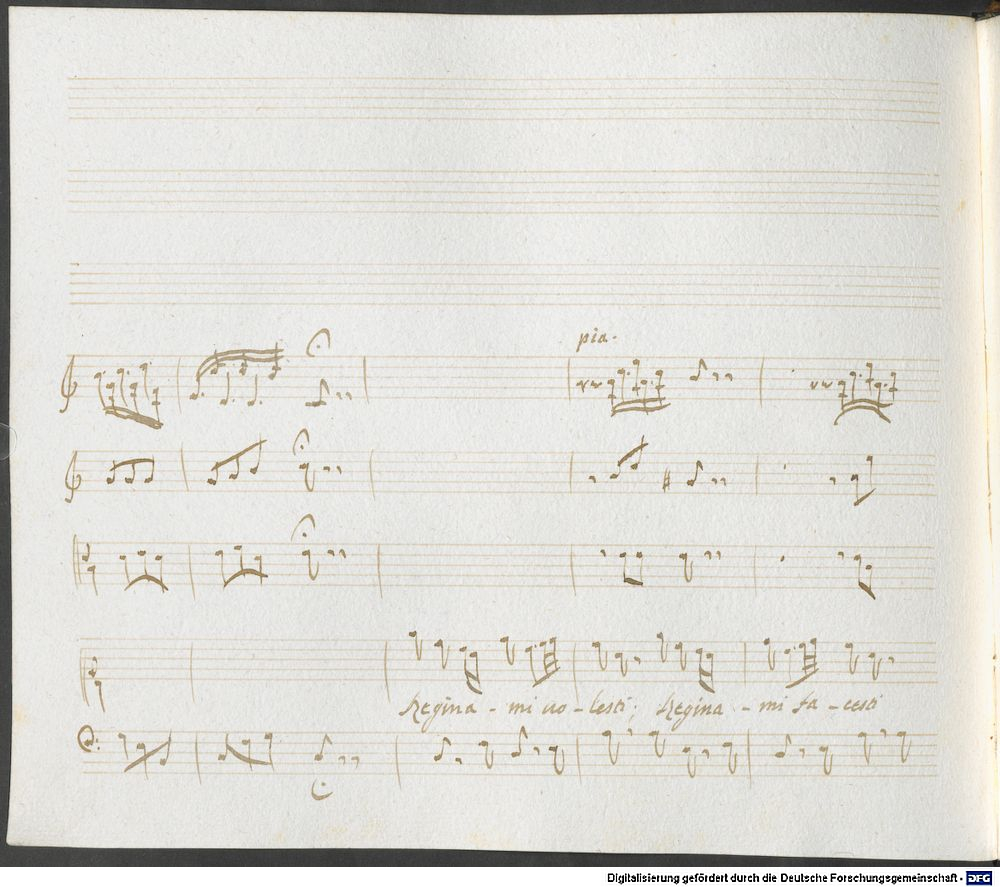 pia.
Regina - mi vo - lesti; Regina - mi fa - cesti
Digitalisierung gefördert durch die Deutsche Forschungsgemeinschaft - DFG